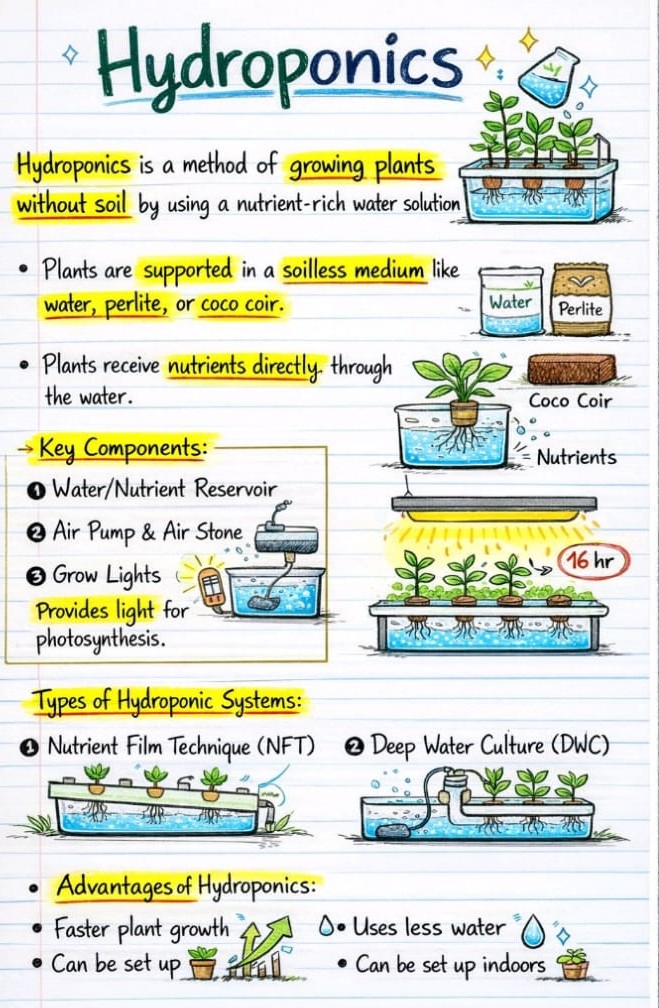 Hydroponics
Hydroponics is a method of growing plants
without soil by using a nutrient-rich water solution
• Plants are supported in a soilless medium like
water, perlite, or coco coir.
Water
Perlite
• Plants receive nutrients directly. through
the water.
Coco Coir
Nutrients
→ Key Components:
❶ Water/Nutrient Reservoir
❷ Air Pump & Air Stone
❸ Grow Lights
Provides light for
photosynthesis.
16 hr
Types of Hydroponic Systems:
❶ Nutrient Film Technique (NFT)
❷ Deep Water Culture (DWC)
• Advantages of Hydroponics:
• Faster plant growth
• Uses less water
• Can be set up
• Can be set up indoors